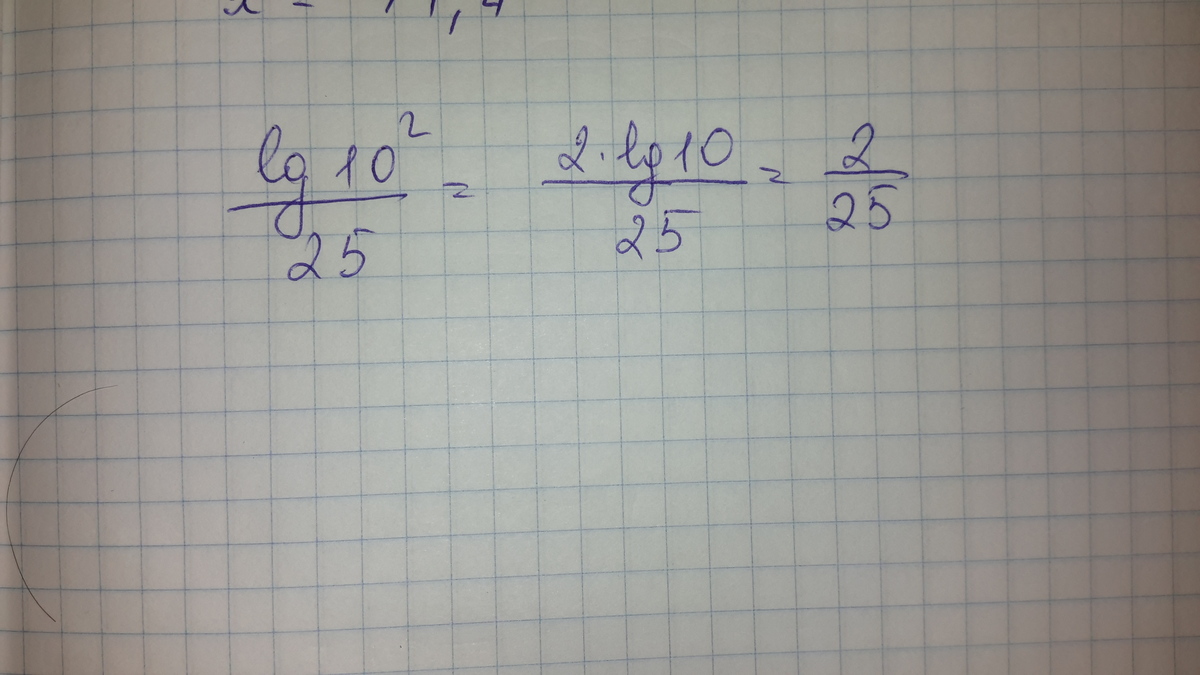 lg 10² / 25 = 2·lg 10 / 25 = 2 / 25